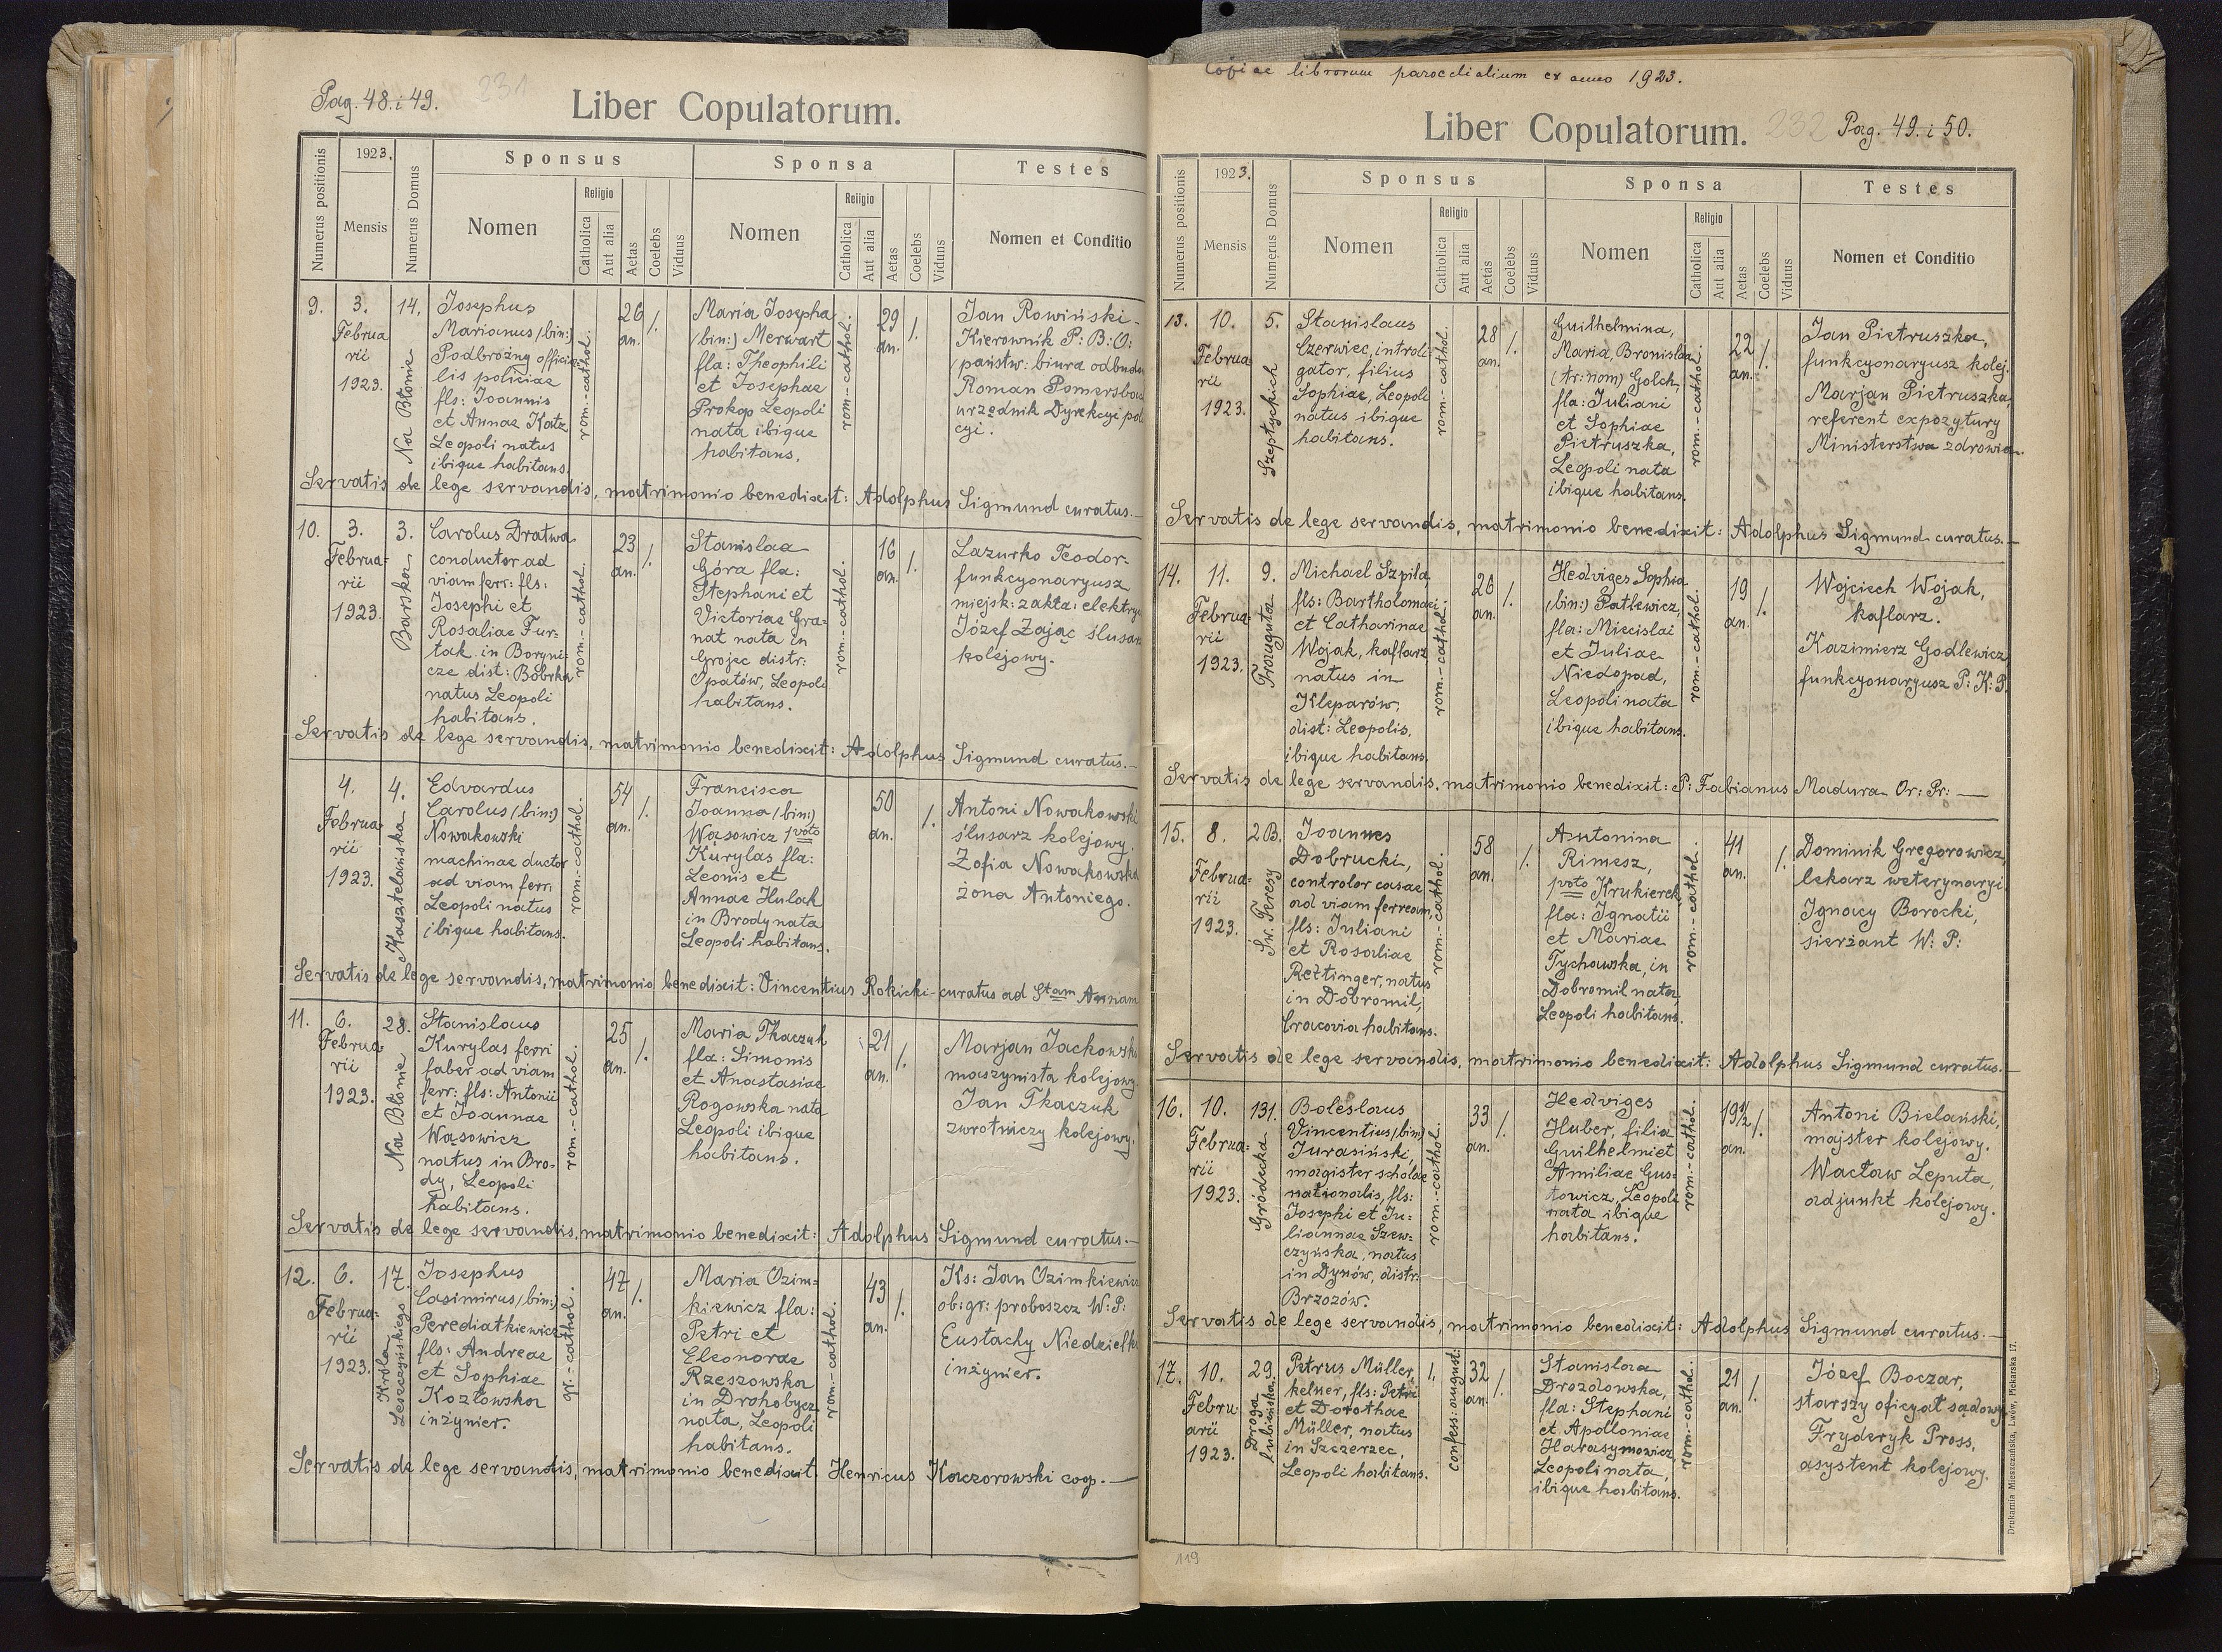 Pag. 48. i 49.
231
Liber Copulatorum.
Numerus positionis
1923.
Mensis
Numerus Domus
Sponsus
Nomen
Religio
Catholica
Aut alia
Aetas
Coelebs
Viduus
Sponsa
Nomen
Religio
Catholica
Aut alia
Aetas
Coelebs
Viduns
Testes
Nomen et Conditio
9.
3.
Februa
rii
1923.
14.
Na Błonie
Josephus
Marianus (bin:)
Podbrożny officia
lis policiae
fls: Joannis
et Annae Katz
Leopoli natus
ibique habitans.
rom.-cathol.
26
an.
/.
Maria Josepha
(bin:) Merwart
fla: Theophili
et Josephae
Prokop Leopoli
nata ibique
habitans.
rom-cathol.
29
an.
/.
Jan Rowiński -
Kierownik P: B: O:
(państw: biura odbudo
Roman Pomersbac
urzędnik Dyrekcyi pol
cyi.
Servatis de lege servandis, matrimonio benedixit: Adolphus Sigmund curatus.—
10.
3.
Februa-
rii
1923.
3.
Barska
Carolus Dratwa
conductor ad
viam ferr: fls:
Josephi et
Rosaliae Fur-
tak in Boryni-
cze dist: Bóbrka
natus Leopoli
habitans.
rom.-cathol.
23
an.
/.
Stanislaa
Góra fla:
Stephani et
Victoriae Gra-
nat nata in
Grojec distr:
Opatów, Leopoli
habitans.
rom.-cathol.
16
an.
/.
Lazurko Teodor-
funkcyonaryusz
miejsk: zakła: elektry
Józef Zając ślusar
kolejowy.
Servatis de lege servandis, matrimonio benedixit: Adolphus Sigmund curatus.—
4.
Februa
rii
1923.
4.
Kasztelańska
Edvardus
Carolus (bin:)
Nowakowski
machinae ductor
ad viam ferr:
Leopoli natus
ibique habitans.
rom.-cathol.
54
an.
/.
Francisca
Joanna (bin:)
Wąsowicz 1voto
Kurylas fla:
Leonis et
Annae Hulak
in Brody nata
Leopoli habitans.
50
an.
/.
Antoni Nowakowski
ślusarz kolejowy.
Zofia Nowakowska
żona Antoniego.
Servatis de lege servandis, matrimonio benedixit: Vincentius Rokicki-curatus ad Stam Annam
11.
6.
Februa-
rii
1923.
28.
Na Błonie
Stanislaus
Kurylas ferri
faber ad viam
ferr: fls: Antonii
et Joannae
Wąsowicz
natus in Bro-
dy, Leopoli
habitans.
rom.-cathol.
25
an.
/.
Maria Tkaczuk
fla: Simonis
et Anastasiae
Rogowska nata
Leopoli ibique
habitans.
21
an.
/.
Marjan Jackowski
maszynista kolejowy.
Jan Tkaczuk
zwrotniczy kolejowy.
Servatis de lege servandis, matrimonio benedixit: Adolphus Sigmund curatus.—
12.
6.
Februa-
rii
1923.
17.
Króla
Leszczyńskiego
Josephus
Casimirus (bin:)
Perediatkiewicz
fls: Andreae
et Sophiae
Kozłowska
inżynier.
gr.-cathol.
47
an.
/.
Maria Ozim-
kiewicz fla:
Petri et
Eleonorae
Rzeszowska
in Drohobycz
nata, Leopoli
habitans.
rom.-cathol.
43
an.
/.
Ks: Jan Ozimkiewicz
ob: gr: proboszcz W: P:
Eustachy Niedzielk
inżynier.
Servatis de lege servandis, matrimonio benedixit Henricus Kaczorowski cop.—
Copiae librorum paroecialium ex anno 1923.
Liber Copulatorum.
232
Pag. 49. i 50.
Numerus positionis
1923.
Mensis
Numerus Domus
Sponsus
Nomen
Religio
Catholica
Aut alia
Aetas
Coelebs
Viduus
Sponsa
Nomen
Religio
Catholica
Aut alia
Aetas
Coelebs
Viduus
Testes
Nomen et Conditio
13.
10.
Februa
rii
1923.
5.
Szeptyckich
Stanislaus
Czerwiec, introli-
gator, filius
Sophiae, Leopoli
natus ibique
habitans.
rom.-cathol.
28
an.
/.
Guilhelmina,
Maria, Bronislaa
(tr: nom) Golch,
fla: Juliani
et Sophiae
Pietruszka,
Leopoli nata
ibique habitans.
rom.-cathol.
22
an.
/.
Jan Pietruszka,
funkcyonaryusz kolej.
Marjan Pietruszka,
referent expozytury
Ministerstwa zdrowia.
Servatis de lege servandis, matrimonio benedixit: Adolphus Sigmund curatus.—
14.
11.
Februa-
rii
1923.
9.
Traugutta
Michael Szpila,
fls: Bartholomaei
et Catharinae
Wojak, kaflarz
natus in
Kleparów,
dist: Leopolis,
ibique habitans.
rom.-cathol.
26
an.
/.
Hedviges Sophia
(bin:) Patlewicz,
fla: Miecislai
et Juliae
Niedopad,
Leopoli nata
ibique habitans.
rom.-cathol.
19
an.
/.
Wojciech Wojak,
kaflarz.
Kazimierz Godlewicz,
funkcyonaryusz P: K: P.
Servatis de lege servandis, matrimonio benedixit: P: Fabianus Madura Or: Pr: —
15.
8.
Februa-
rii
1923.
2 B.
Św. Teresy
Joannes
Dobrucki,
controlor casae
ad viam ferream,
fls: Juliani
et Rosaliae
Rettinger, natus
in Dobromil,
Cracovia habitans.
rom.-cathol.
58
an.
/.
Antonina
Rimesz,
1voto Krukierek
fla: Ignatii
et Mariae
Tychawska, in
Dobromil nata,
Leopoli habitans.
rom.-cathol.
41
an.
/.
Dominik Gregorowicz,
lekarz weterynaryi.
Ignacy Borocki,
sierżant W: P:
Servatis de lege servandis, matrimonio benedixit: Adolphus Sigmund curatus.—
16.
10.
Februa-
rii
1923.
131.
Gródecka
Boleslaus
Vincentius (bin)
Jurasiński,
magister scholae
nationalis, fls:
Josephi et Ju-
liannae Szew-
czyńska, natus
in Dynów, distr:
Brzozów.
rom.-cathol.
33
an.
/.
Hedviges
Huber, filia
Guilhelmi et
Amiliae Gus-
towicz, Leopoli
nata ibique
habitans.
rom.-cathol.
19 1/2
an.
/.
Antoni Bielański,
majster kolejowy.
Wacław Leputa,
adjunkt kolejowy.
Servatis de lege servandis, matrimonio benedixit: Adolphus Sigmund curatus.—
17.
10.
Febru-
arii
1923.
29.
Droga
lubieńska
Petrus Müller,
kelner, fls: Petri
et Dorothae
Müller, natus
in Szczerzec,
Leopoli habitans.
/.
confess: august:
32
an.
/.
Stanislaa
Drozdowska,
fla: Stephani
et Apolloniae
Harasymowicz,
Leopoli nata,
ibique habitans.
rom-cathol.
21
an.
/.
Józef Boczar,
starszy oficyał sądowy.
Fryderyk Pross,
asystent kolejowy.
119
Drukarnia Mieszczańska, Lwów, Piekarska 17.